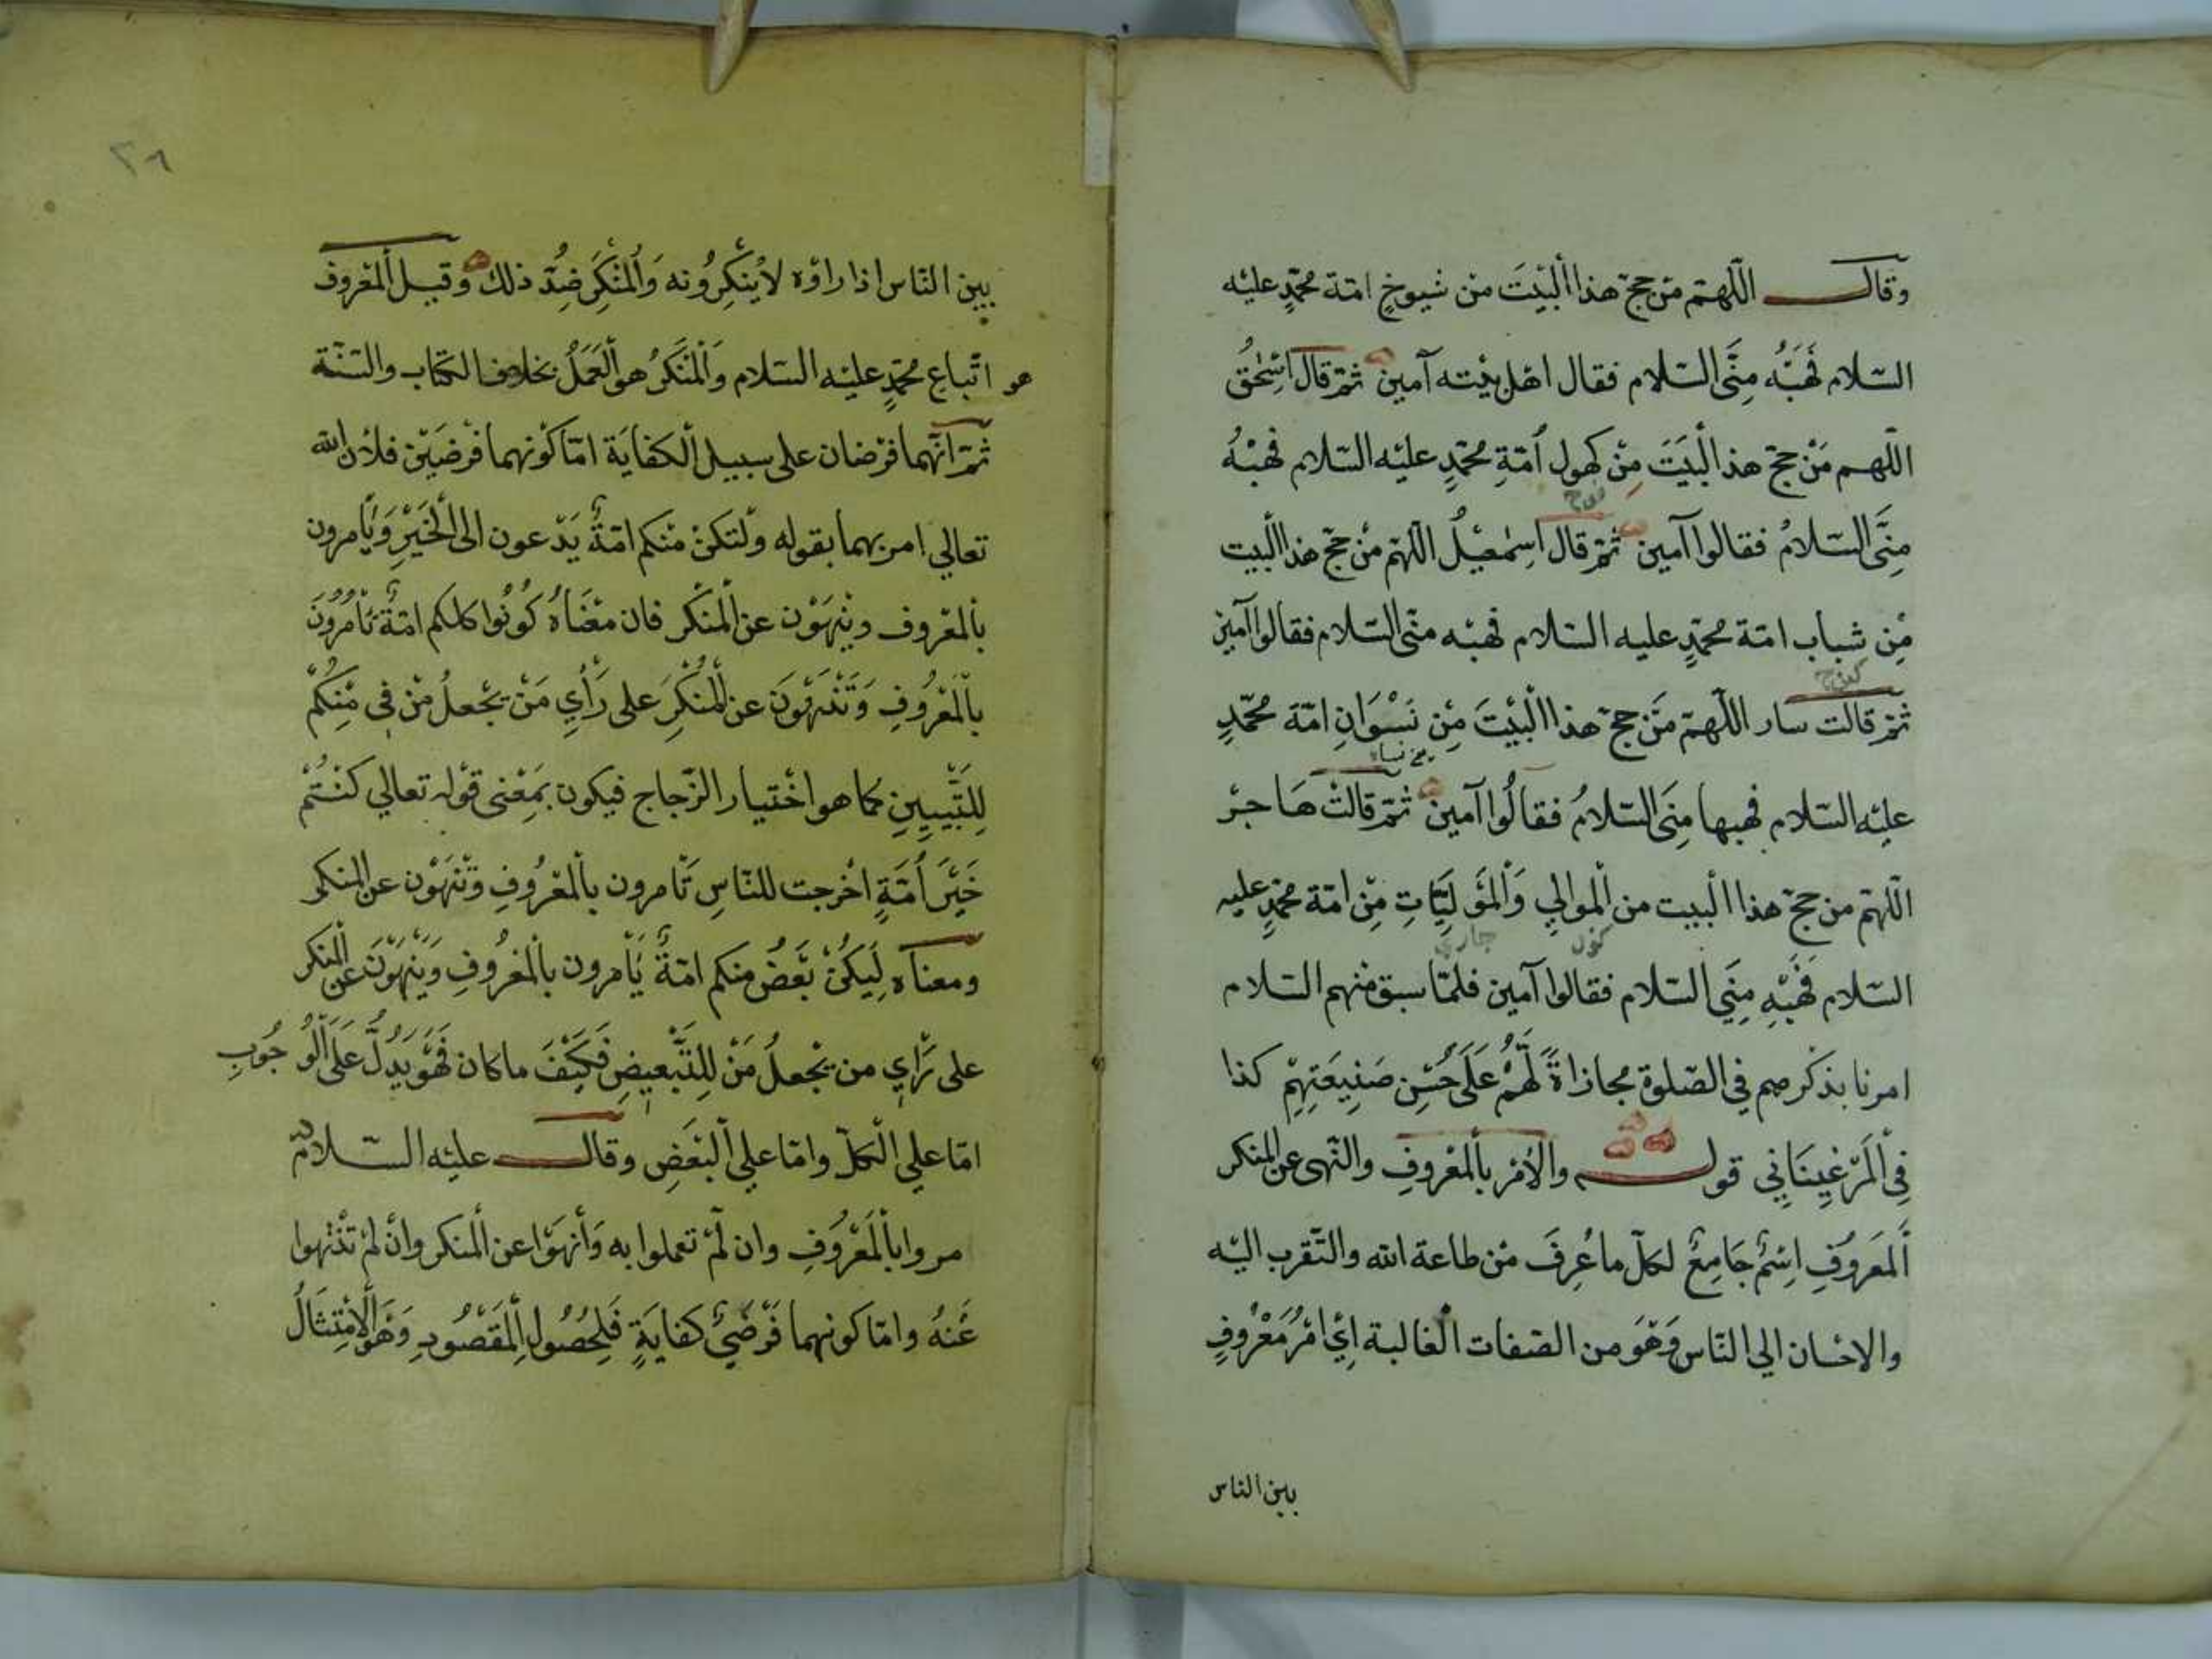 وقال اللّهمّ من حجّ هذا البيت من شيوخ امّة محمّد عليه
السّلام فهبه منّى السّلام فقال اهل بيته آمين ثمّ قال اسحق
اللّهم من حجّ هذ البيت من كهول أمّة محمّد عليه السّلام فهبه
منّى السّلام فقالوا آمين ثمّ قال اسمعيل اللّهمّ من حجّ هذا البيت
من شباب امّة محمّد عليه السّلام فهبه منّى السّلام فقالوا آمين
ثمّ قالت سار اللّهمّ من حجّ هذا البيت من نسوان امّة محمّد
عليه السّلام فهبها منّى السّلام فقالوا آمين ثمّ قالت هاجر
اللّهمّ من حجّ هذا البيت من الموالي والموليات من امّة محمّد عليه
السّلام فهبه منّي السّلام فقالوا آمين فلمّا سبق منهم السّلام
امرنا بذكرهم في الصّلوة مجازاة لهم على حسن صنيعتهم كذا
في المرغيناني قوله والأمر بالمعروف والنّهى عن المنكر
المعروف اسم جامع لكلّ ما عرف من طاعة الله والتّقرب اليه
والاحسان الي النّاس وهو من الصّفات الغالبة اي امر معروف
بين الناس
٢٨
بين النّاس اذا راؤه لا ينكرونه والمنكر ضدّ ذلك وقيل المعروف
هو اتّباع محمّد عليه السّلام والمنكر هو العمل بخلاف الكتاب والسّنّة
ثمّ انّهما فرضان على سبيل الكفاية امّا كونهما فرضين فلأن الله
تعالي امر بهما بقوله ولتكن منكم امّة يدعون الى الخير ويأمرون
بالمعروف وينهون عن المنكر فان معناه كونوا كلكم امّة تأمرون
بالمعروف وتنهون عن المنكر على رأي من يجعل من في منكم
للتّبيين كما هو اختيار الزّجاج فيكون بمعنى قوله تعالي كنتم
خير أمّة اخرجت للنّاس تأمرون بالمعروف وتنهون عن المنكر
ومعناه ليكن بعض منكم امّة يأمرون بالمعروف وينهون عن المنكر
على رأي من يجعل من للتّبعيض فكيف ما كان فهو يدلّ على الوجوب
امّا علي الكلّ وامّا علي البعض وقال عليه السّلام
مروا بالمعروف وان لم تعملوا به وأنهوا عن المنكر وان لم تنتهوا
عنه وامّا كونهما فرضي كفاية فلحصول المقصود وهو الامتثال